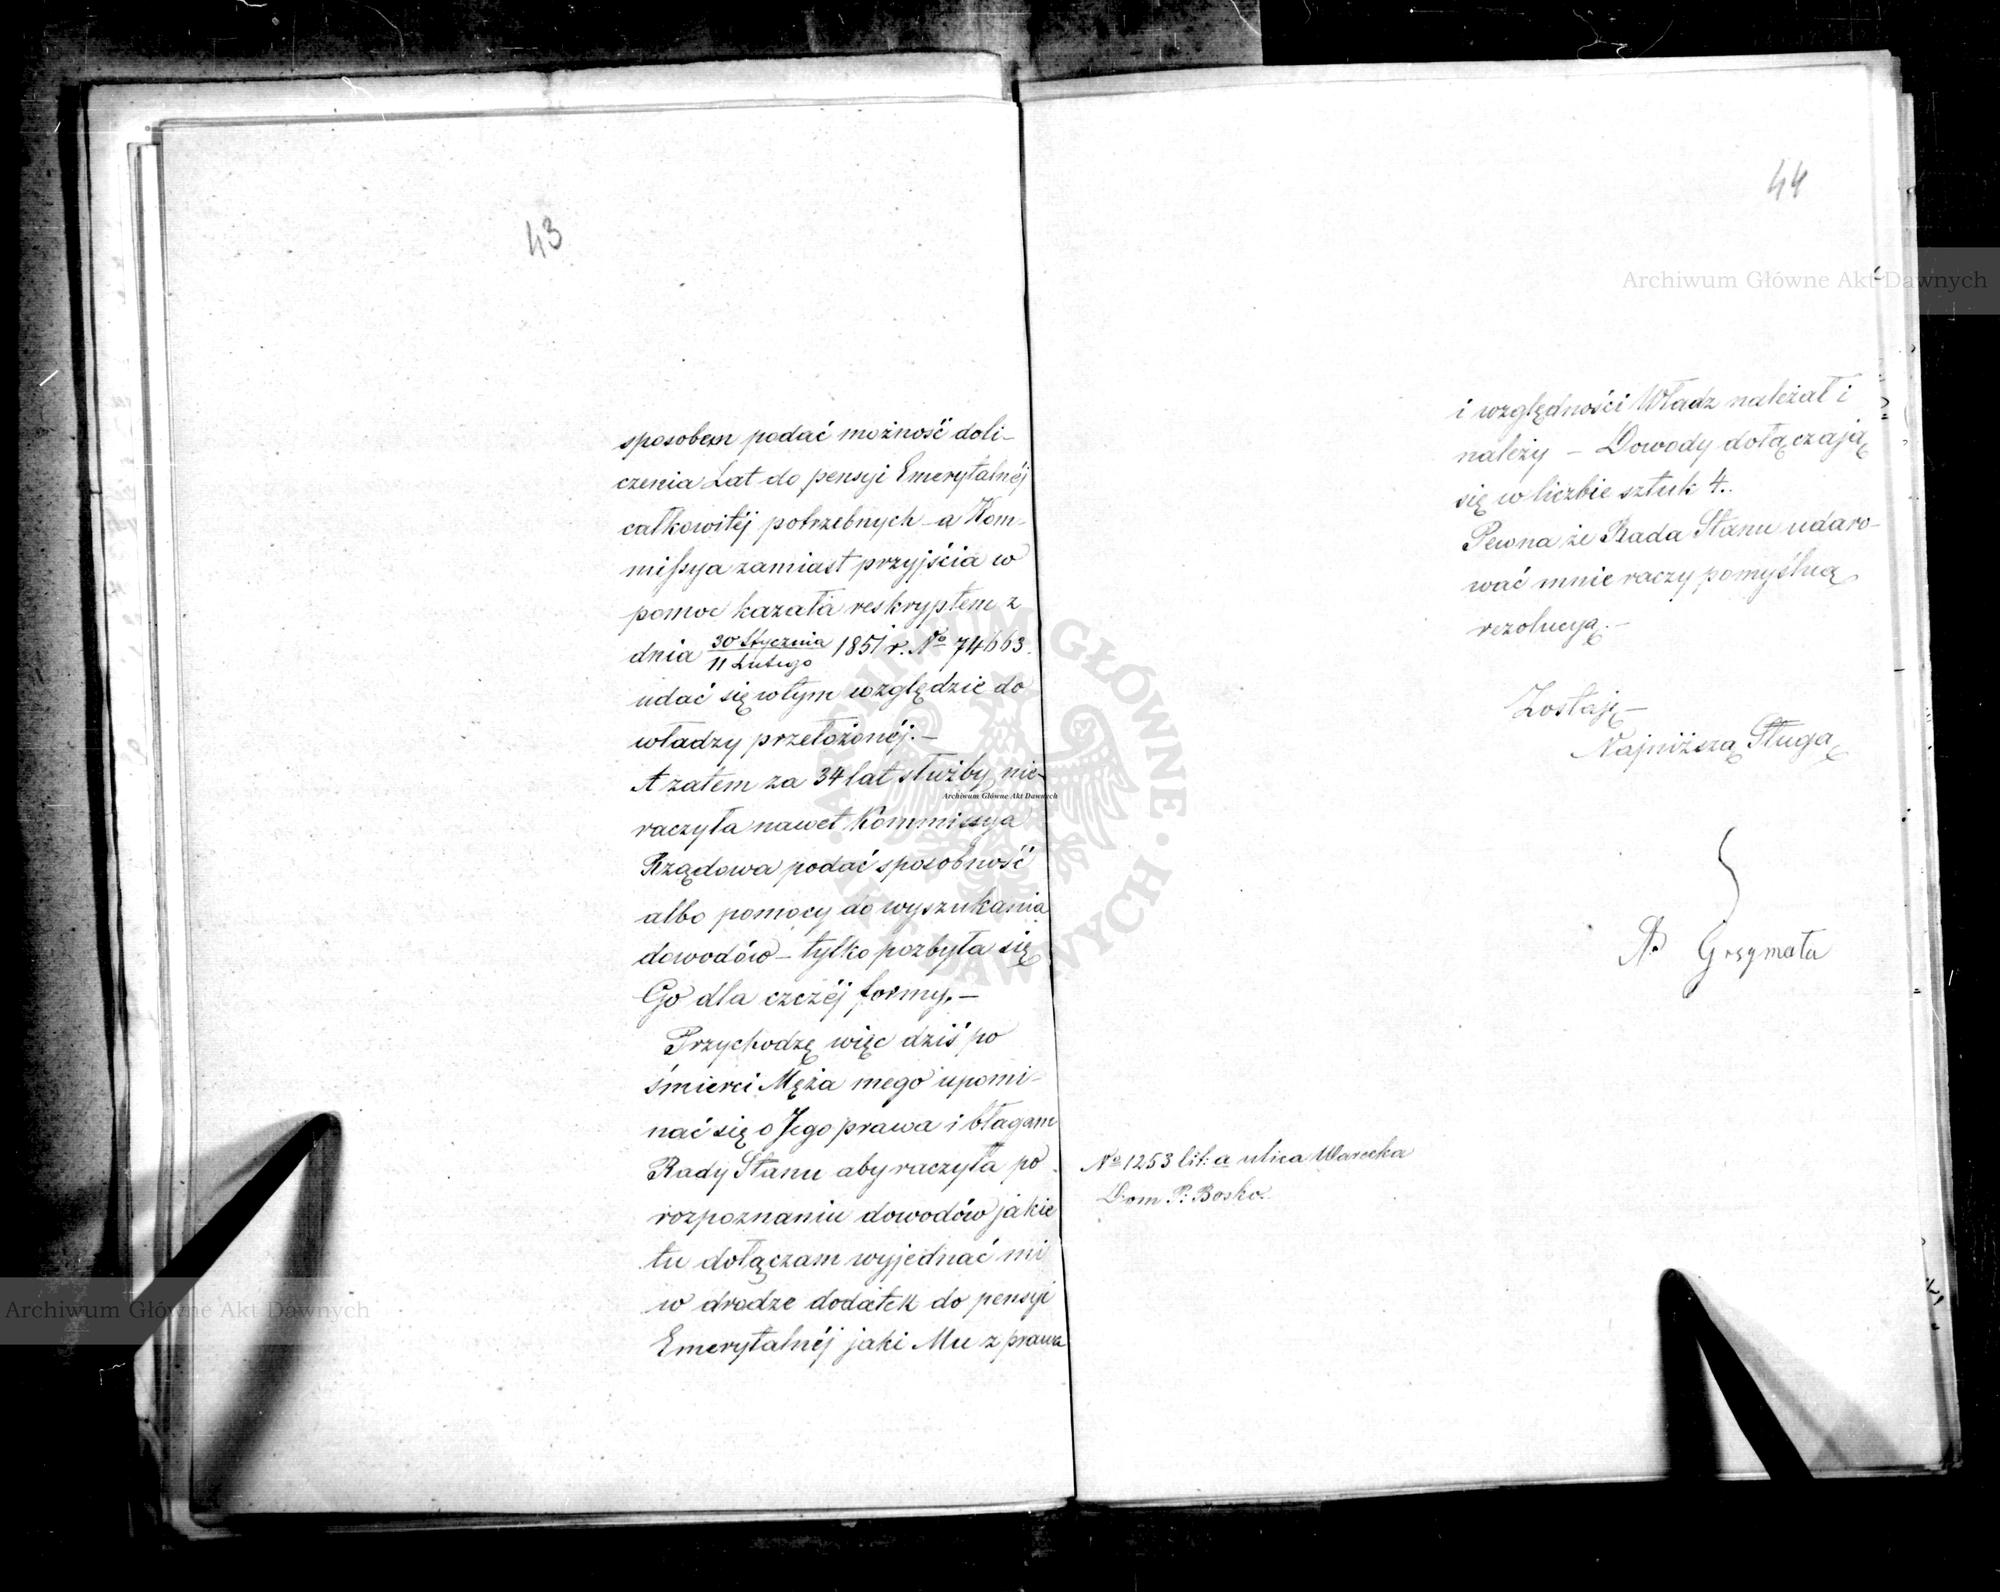 43
sposobem podać możność doli-
czenia Lat do pensyi Emerytalnéj
całkowitéj potrzebnych a Kom-
missya zamiast przyjścia w
pomoc kazała reskryptem z
dnia 30 Stycznia / 11 Lutego 1851 r. No 74663.
udać się w tym względzie do
władzy przełożonéj.—
A zatem za 34 lat służby nie-
raczyła nawet Kommissya
Rządowa podać sposobność
albo pomocy do wyszukania
dowodów – tylko pozbyła się
Go dla czczéj formy.—
Przychodzę więc dziś po
śmierci Męża mego upomi-
nać się o Jego prawa i błagam
Rady Stanu aby raczyła po
rozpoznaniu dowodów jakie
tu dołączam wyjednać mi
w drodze dodatek do pensyi
Emerytalnéj jaki Mu z prawa
44
i względności Władz należał i
należy – Dowody dołączają
się w liczbie sztuk 4.
Pewna że Rada Stanu udaro-
wać mnie raczy pomyślną
rezolucyą.—
Zostaję—
Najniższą Sługą
Grzymała
No 1253 lit: a ulica Warecka
Dom P: Bosko.
Archiwum Główne Akt Dawnych
Archiwum Główne Akt Dawnych
Archiwum Główne Akt Dawnych
ARCHIWUM GŁÓWNE · AKT DAWNYCH ·